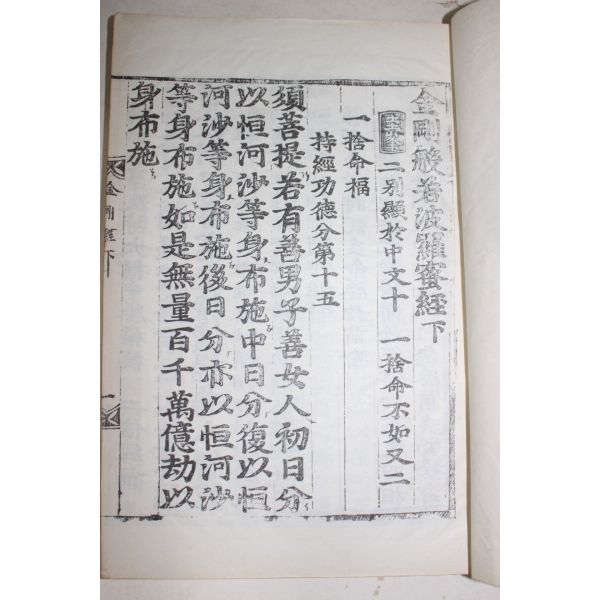 金剛般若波羅蜜經下
二別顯於中文十 一捨命不如又二
一捨命福
持經功德分第十五
須菩提若有善男子善女人初日分
以恒河沙等身布施中日分復以恒
河沙等身布施後日分亦以恒河沙
等身布施如是無量百千萬億劫以
身布施
金剛經下
一